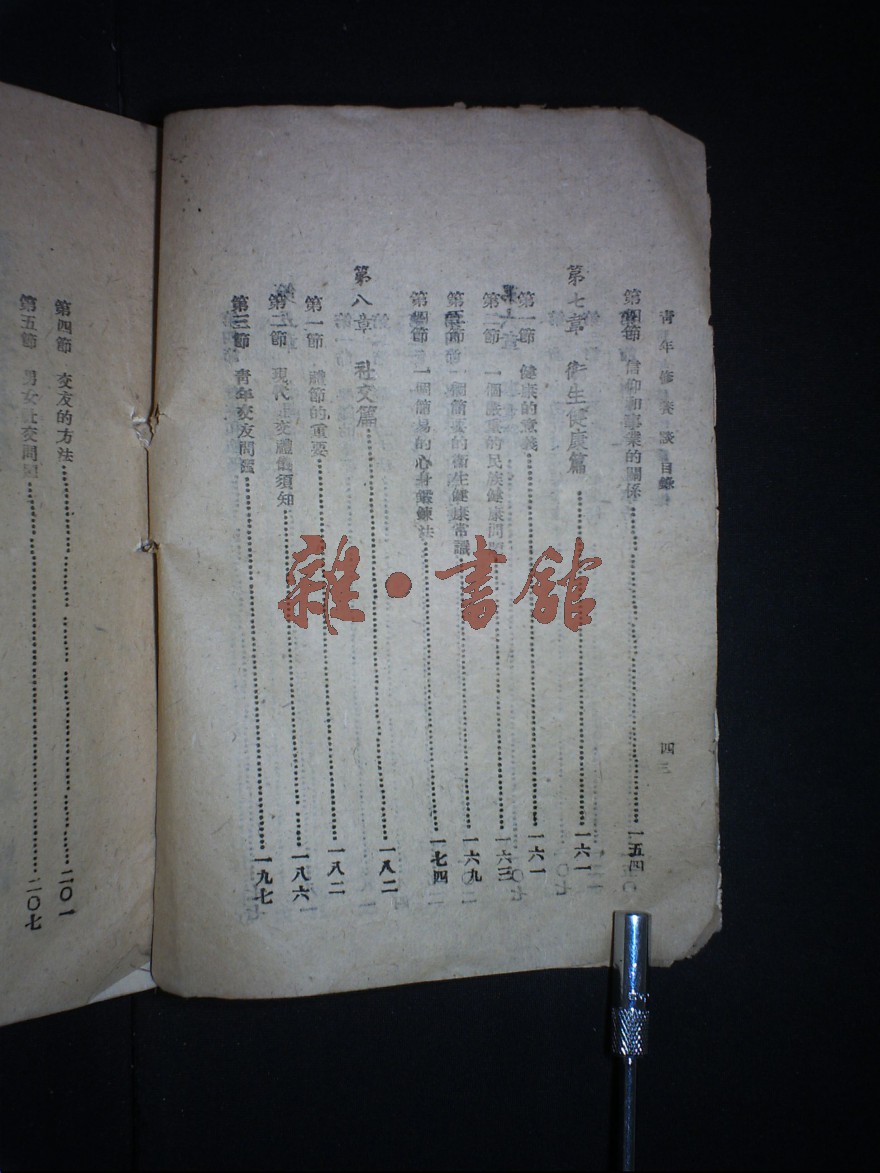 青年修養談 目錄
四三
第四節 信仰和事業的關係 一五四
第七章 衛生健康篇 一六一
第一節 健康的意義 一六一
第二節 一個嚴重的民族健康問題 一六三
第三節 一個簡要的衛生健康常識 一六九
第四節 一個簡易的心身鍛鍊法 一七四
第八章 社交篇 一八二
第一節 禮節的重要 一八二
第二節 現代社交禮儀須知 一八六
第三節 青年交友問題 一九七
第四節 交友的方法 二〇一
第五節 男女社交問題 二〇七
雜·書館